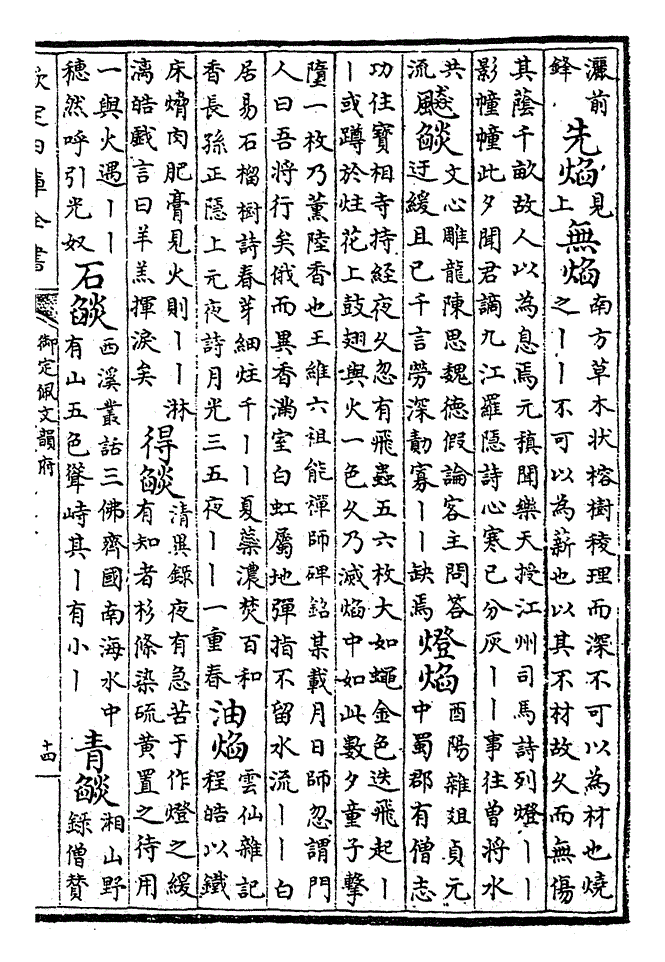 灑前
鋒
先焰
見
上
無焰
南方草木狀榕樹稜理而深不可以為材也燒
之丨丨不可以為薪也以其不材故久而無傷
其蔭千畝故人以為息焉元稹聞樂天授江州司馬詩列燈丨丨
影幢幢此夕聞君謫九江羅隱詩心寒已分灰丨丨事往曾將水
共
流
飈燄
文心雕龍陳思魏德假論客主問答
迂緩且已千言勞深勣寡丨丨缺焉
燈焰
酉陽雜俎貞元
中蜀郡有僧志
功住寶相寺持經夜久忽有飛蟲五六枚大如蠅金色迭飛起丨
丨或蹲於炷花上鼓翅與火一色久乃滅焰中如此數夕童子擊
墮一枚乃薰陸香也王維六祖能禪師碑銘某載月日師忽謂門
人曰吾將行矣俄而異香滿室白虹屬地彈指不留水流丨丨白
居易石榴樹詩春芽細炷千丨丨夏蘂濃焚百和
香長孫正隱上元夜詩月光三五夜丨丨一重春
油焰
雲仙雜記
程皓以鐵
床熁肉肥膏見火則丨丨淋
漓皓戲言曰羊羔揮淚矣
得燄
清異錄夜有急苦于作燈之緩
有知者杉條染硫黃置之待用
一與火遇丨丨
穗然呼引光奴
石燄
西溪叢話三佛齊國南海水中
有山五色聳峙其丨有小丨
青燄
湘山野
録僧贊
欽定四庫全書
御定佩文韻府
十四